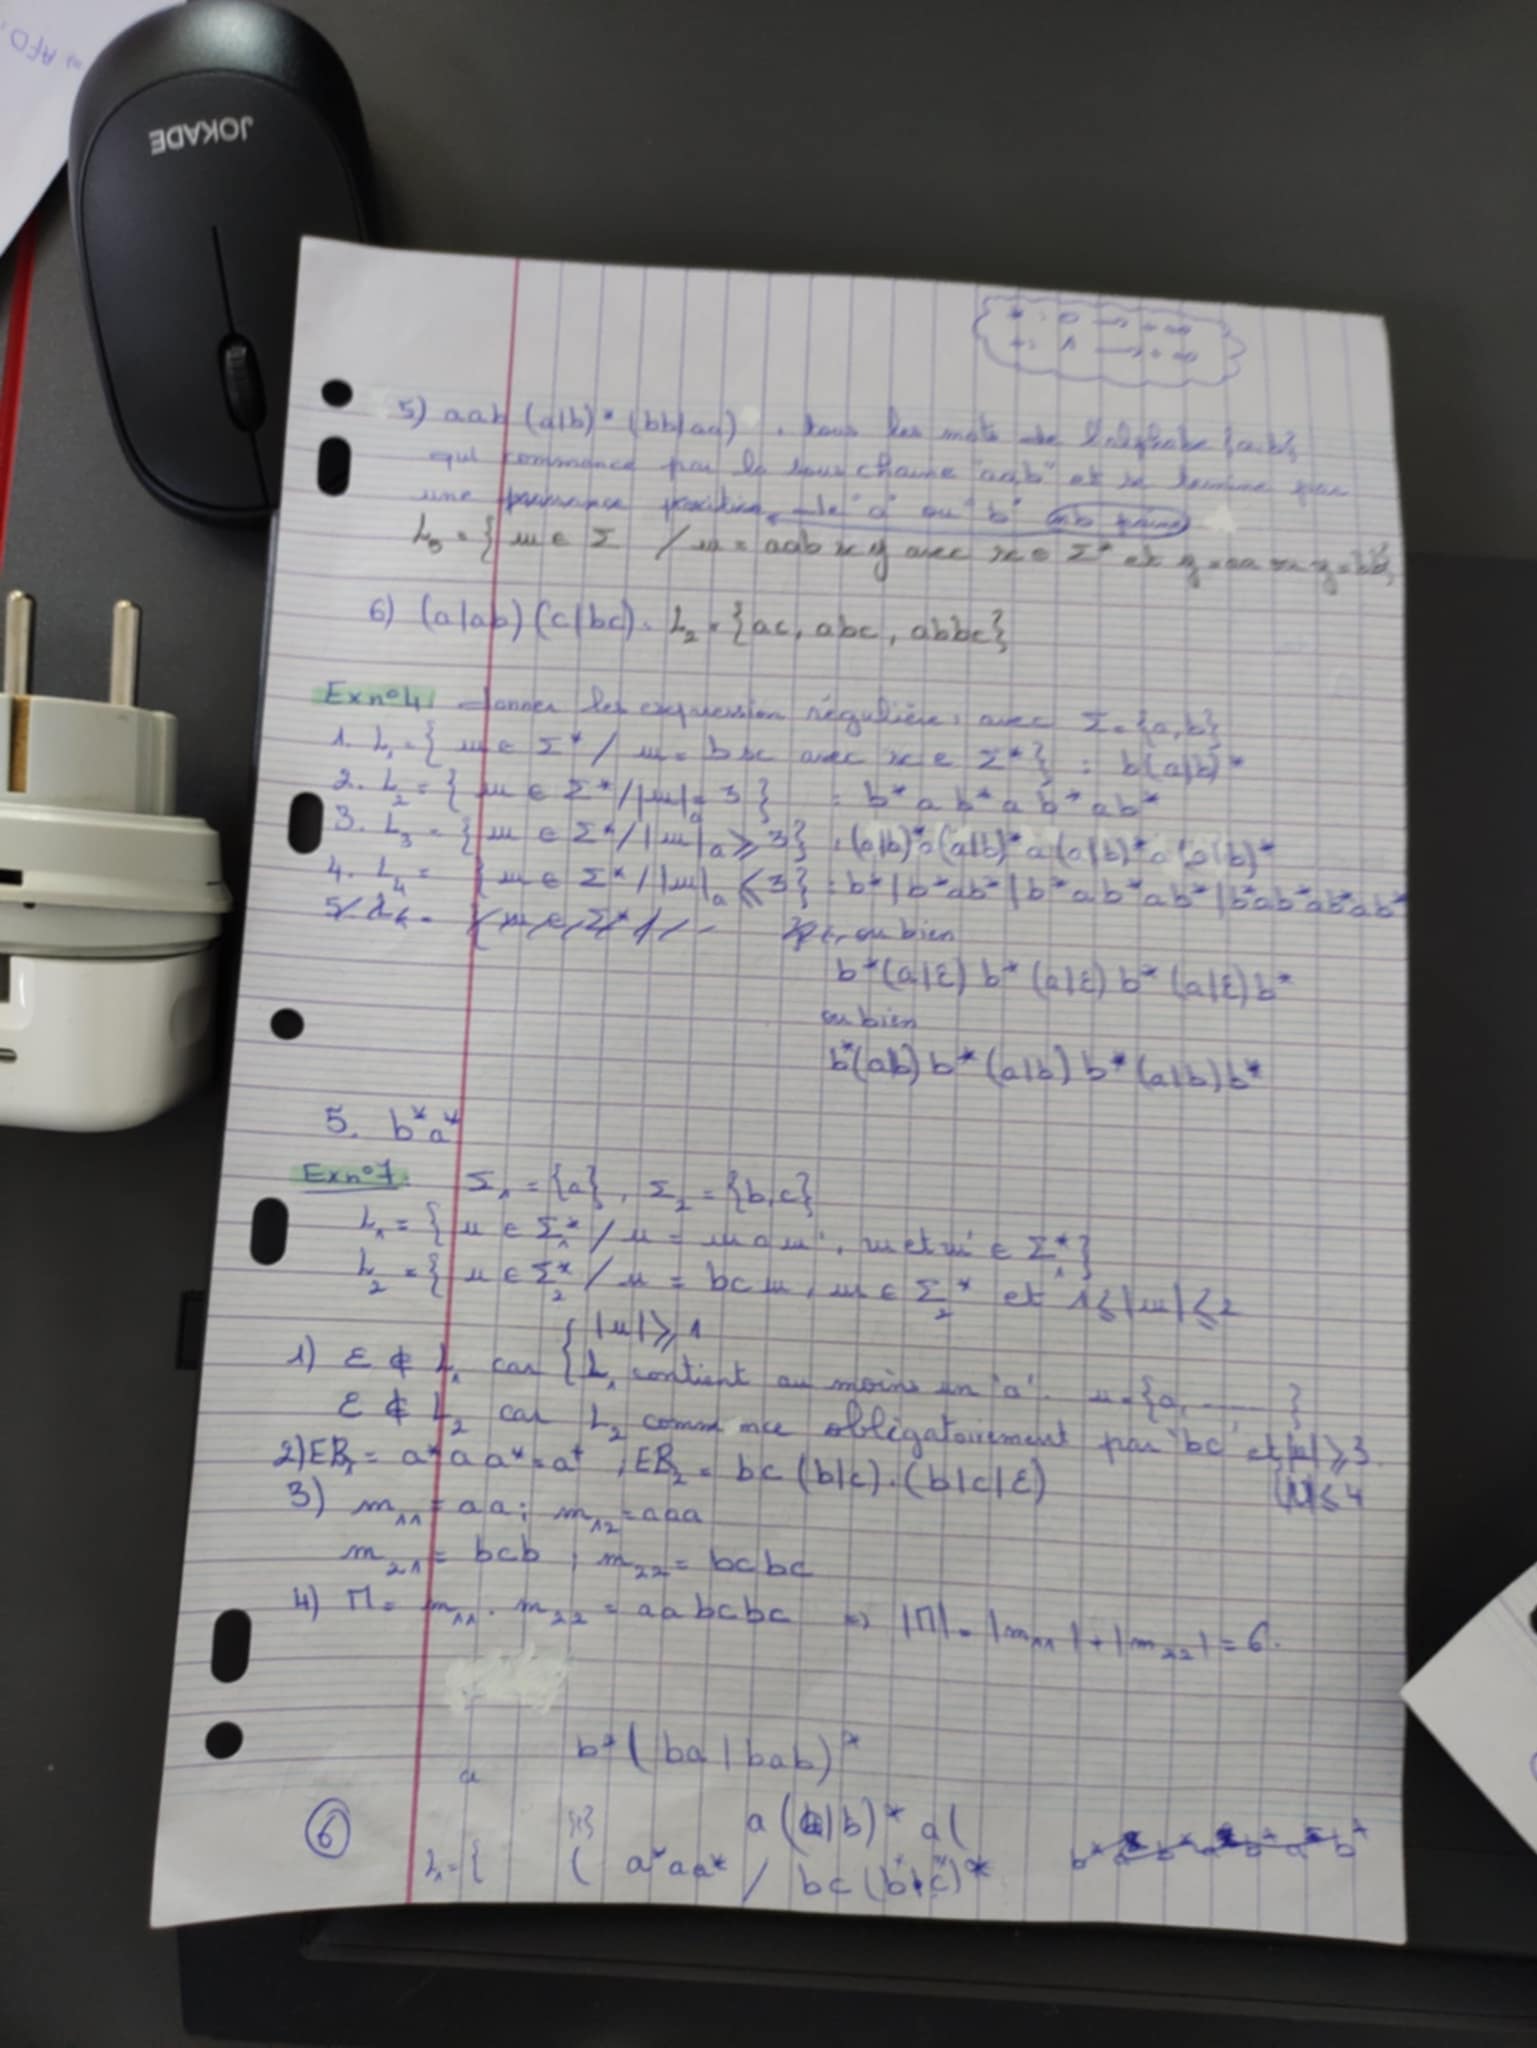 ⇒ AFD
JOKADE
* : 0 → +∞
+ : 1 → +∞
5) aab (a|b)* (bb|aa) . tous les mots de l'alphabe {a,b}
qui commence par la sous chaine "aab" et se termine par
une "a" ou "b"
L5 = { w ∈ Σ / w = aab x y avec x ∈ Σ* et y = aa ou y = bb}
6) (a|ab) (c|bc) . L2 = {ac, abc, abbc}
Ex n°4 donner les expression régulière, avec Σ = {a,b}
1. L1 = { w ∈ Σ* / w = b x avec x ∈ Σ* } : b(a|b)*
2. L2 = { w ∈ Σ* / |w|a = 3 } : b* a b* a b* a b*
3. L3 = { w ∈ Σ* / |w|a ⩾ 3} : (a|b)* a (a|b)* a (a|b)* a (a|b)*
4. L4 = { w ∈ Σ* / |w|a ⩽ 3} : b* | b* a b* | b* a b* a b* | b* a b* a b* a b*
ou bien
b* (a|ε) b* (a|ε) b* (a|ε) b*
ou bien
b* (a|b) b* (a|b) b* (a|b) b*
5. b* a*
Ex n°7 Σ1 = {a} , Σ2 = {b,c}
L1 = { u ∈ Σ1* / u = w a w' , w et w' ∈ Σ1* }
L2 = { u ∈ Σ2* / u = bc w , w ∈ Σ2* et 1 ⩽ |w| ⩽ 2
1) ε ∉ L1 car { |u| ⩾ 1
L1 contient au moins un 'a' . u = {a, ...... }
ε ∉ L2 car L2 commence obligatoirement par 'bc' et |u| ⩾ 3
|u| ⩽ 4
2) ER1 = a* a a* = a+ ; ER2 = bc (b|c) . (b|c|ε)
3) m11 = aa ; m12 = aaa
m21 = bcb ; m22 = bcbc
4) Π = m11 . m22 = aabcbc ⇒ |Π| = |m11| + |m22| = 6.
b* ( ba | bab)*
a
6 a (a|b)* a (
L = { ( a* a a* / bc (b* | c*)*